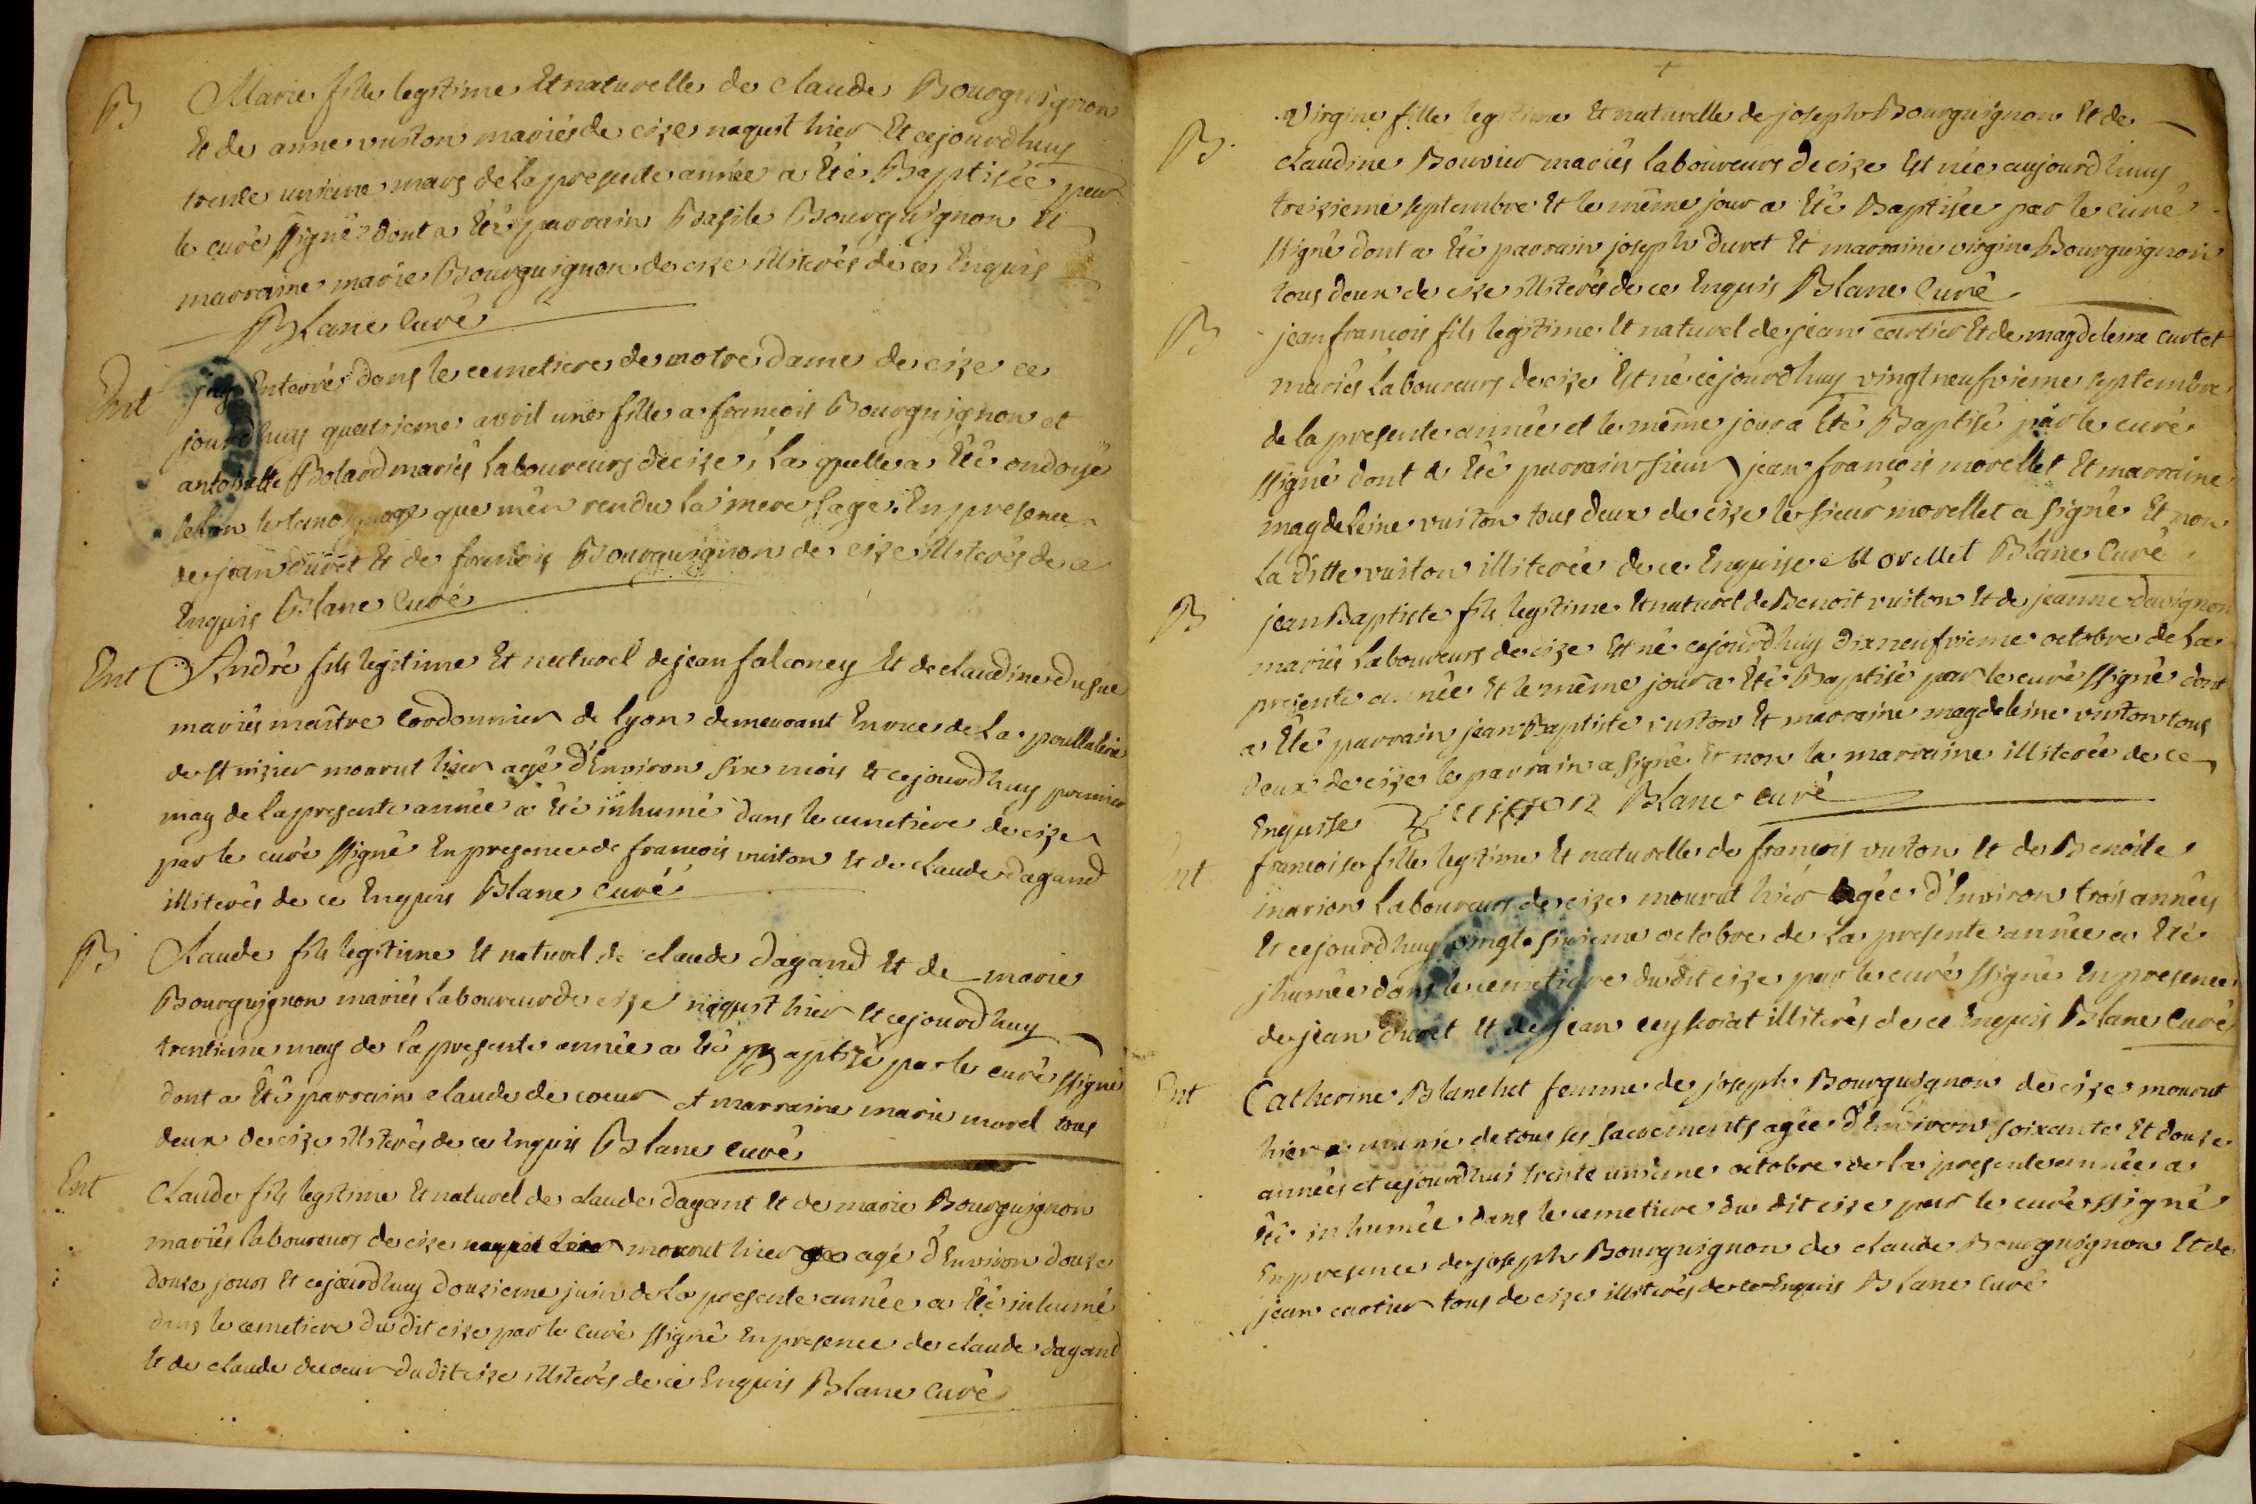 B Marie fille legitime Et naturelle de claude Bourguignon
Et de anne vuiton mariés de cize naquit hier Et cejourdhuy
trente unieme mars de la presente année a Eté Baptisée par
le curé ssigné dont a Eté parrain Basile Bourguignon Et
marraine marie Bourguignon de cize illiterés de ce Enquis
Blanc Curé
Ent jay Enterré dans le cemetiere de notre dame de cize ce
jourdhuy quatrieme avril une fille a francois Bourguignon et
antoinette Bolard mariés laboureurs de cize, la quelle a Eté ondoyé
selon le temoignage que m'en rendu la mere sage. En presence
de jean duret Et de francois Bourguignon de cize illiterés de ce
Enquis Blanc Curé
Ent André fils legitime Et naturel de jean falconey Et de claudine dusue
mariés maître Cordonnier de lyon demeurant En rue de La poullalerie
de st nizier mourut hier agé d'Environ six mois Et cejourdhuy premier
may de la presente année a Eté inhumé dans le cemetiere de cize
par le curé ssigné En presence de francois vuiton Et de claude dagand
illiterés de ce Enquis Blanc Curé
B Claude fils legitime Et naturel de claude dagand Et de marie
Bourguignon mariés laboureur de cize naquit hier Et cejourdhuy
trentieme may de la presente année a Eté Baptisé par le curé ssigné
dont a Eté parrain claude de coeur et marraine marie morel tous
deux de cize illiterés de ce Enquis Blanc Curé
Ent Claude fils legitime Et naturel de claude dagant Et de marie Bourguignon
mariés laboureurs de cize naquit hier mourut hier agé d'Environ douze
douze jours Et cejourdhuy douzieme juin de la presente année a Eté inhumé
dans le cemetiere du dit cize par le curé ssigné En presence de claude dagand
Et de claude decoeur du dit cize illiterés de ce Enquis Blanc Curé
B Virgine fille legitime Et naturelle de joseph Bourguignon Et de
claudine Bouvier mariés laboureurs de cize Est née aujourdhuy
treizieme septembre Et le même jour a Eté Baptisée par le curé
ssigné dont a Eté parrain joseph duret Et marraine virgine Bourguignon
tous deux de cize illiterés de ce Enquis Blanc Curé
B jean francois fils legitime Et naturel de jean cartier Et de magdeleine curtet
mariés laboureurs de cize Est né cejourdhuy vingt neufvieme septembre
de la presente année et le même jour a Eté Baptisé par le curé
ssigné dont a Eté parrain sieur jean francois morellet Et marraine
magdeleine vuiton tous deux de cize le sieur morellet a signé Et non
la ditte vuiton illiterée de ce Enquise Morellet Blanc Curé
B jean Baptiste fils legitime Et naturel de Benoit vuiton Et de jeanne davignon
mariés laboureurs de cize Est né cejourdhuy dixneufvieme octobre de la
presente année Et le même jour a Eté Baptisé par le curé ssigné dont
a Eté parrain jean Baptiste vuiton Et marraine magdeleine vuiton tous
deux de cize le parrain a signé Et non la marraine illiterée de ce
Enquisse Vuiton Blanc Curé
Ent francoise fille legitime Et naturelle de francois vuiton Et de Benoite
marion laboureurs de cize mourut hier agée d'Environ trois années
Et cejourdhuy vingt sixieme octobre de la presente année a Eté
jhumée dans le cemetiere du dit cize par le curé ssigné En presence
de jean duret Et de jean ceyseriat illiterés de ce Enquis Blanc Curé
Ent Catherine Blanchet femme de joseph Bourguignon de cize mourut
hier munie de tous ses sacrements agée d'Environ soixante Et douze
années et cejourdhui trente unieme octobre de la presente année a
Eté inhumée dans le cemetiere du dit cize par le curé ssigné
En presence de joseph Bourguignon de claude Bourguignon Et de
jean cartier tous de cize illiterés de ce Enquis Blanc Curé